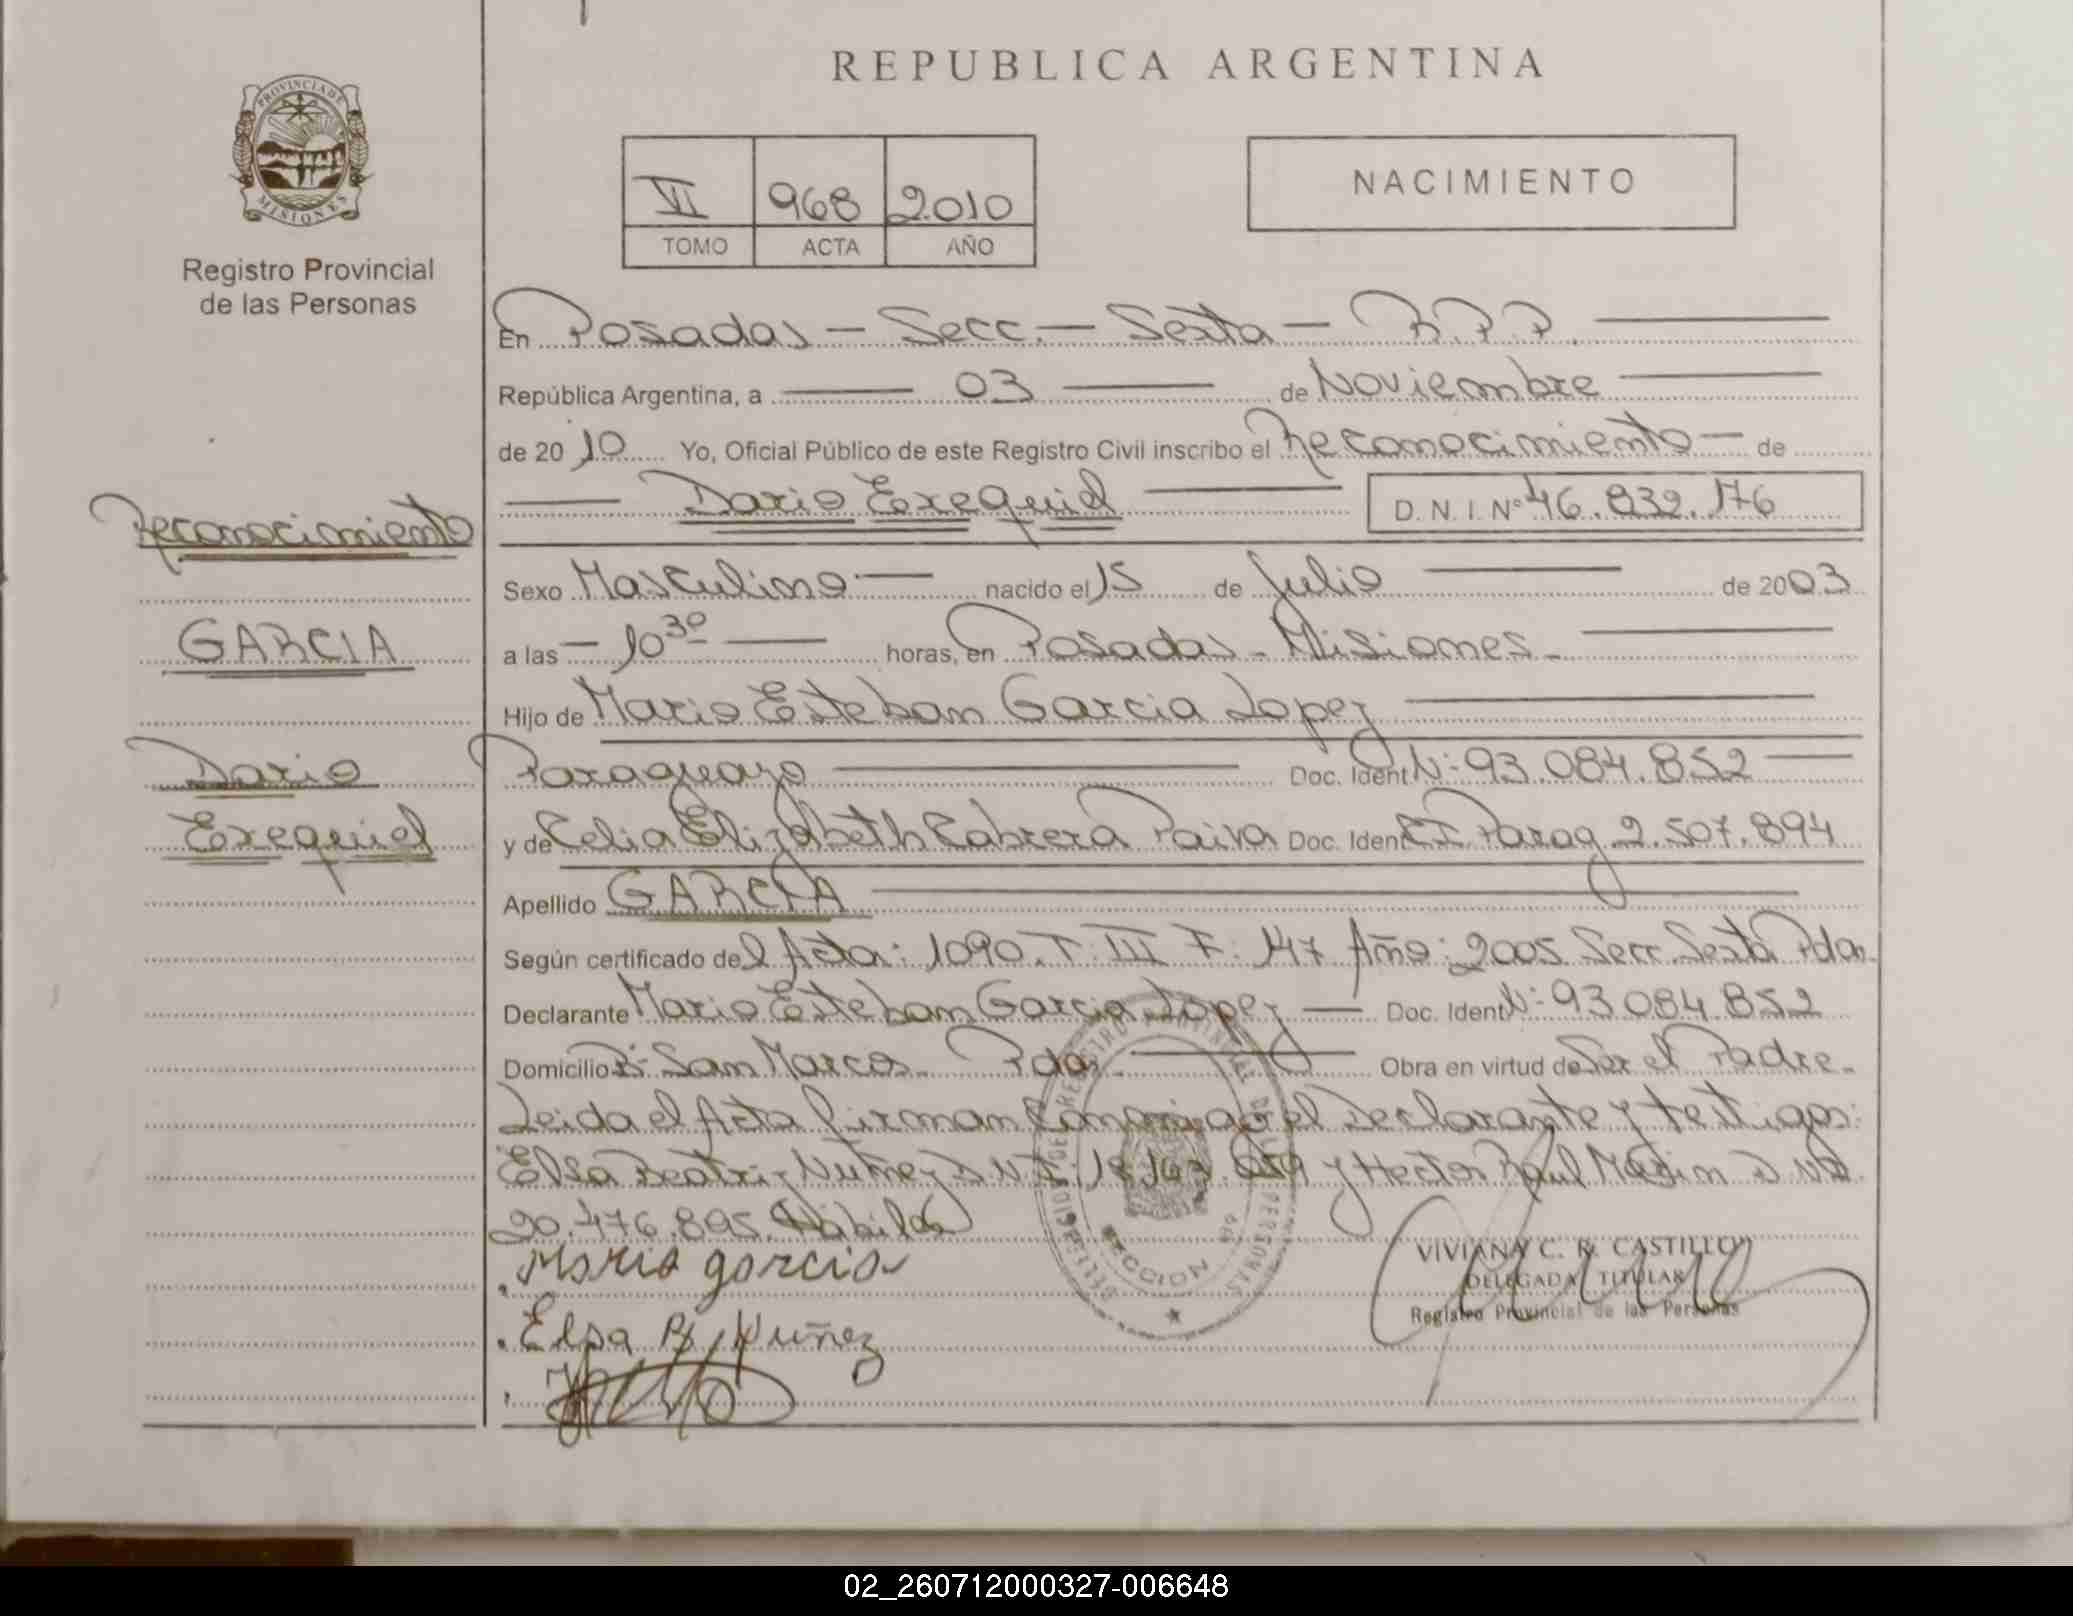 REPUBLICA ARGENTINA
PROVINCIA DE
MISIONES
Registro Provincial
de las Personas
VI 968 2010
TOMO ACTA AÑO
NACIMIENTO
En Posadas - Secc. - Sexta - R.P.P.
República Argentina, a 03 de Noviembre
de 2010 Yo, Oficial Público de este Registro Civil inscribo el Reconocimiento de
Dario Exequiel D. N. I. Nº 46.832.176
Reconocimiento
Sexo Masculino nacido el 15 de Julio de 2003
GARCIA
a las 10 30 horas, en Posadas - Misiones -
Hijo de Mario Esteban Garcia Lopez
Dario
Paraguayo Doc. Ident Nº 93.084.852
Exequiel
y de Celia Elizabeth Cabrera Paiva Doc. Ident CI Parag 2.507.894
Apellido GARCIA
Según certificado del Acta: 1090. T. III F. 147 Año: 2005 Secc. Sexta Pdas.
Declarante Mario Esteban Garcia Lopez Doc. Ident Nº 93.084.852
Domicilio Bº San Marcos - Pdas. Obra en virtud de Ser el Padre.
Leida el Acta firman Conmigo el Declarante y testigos:
Elsa Beatriz Nuñez D.N.I. y Hector Raul D.N.I.
20.476.895. Hábiles
Mario garcia
Elsa B. Nuñez
VIVIANA C. R. CASTILLO
DELEGADA TITULAR
Registro Provincial de las Personas
SECCION
02_260712000327-006648